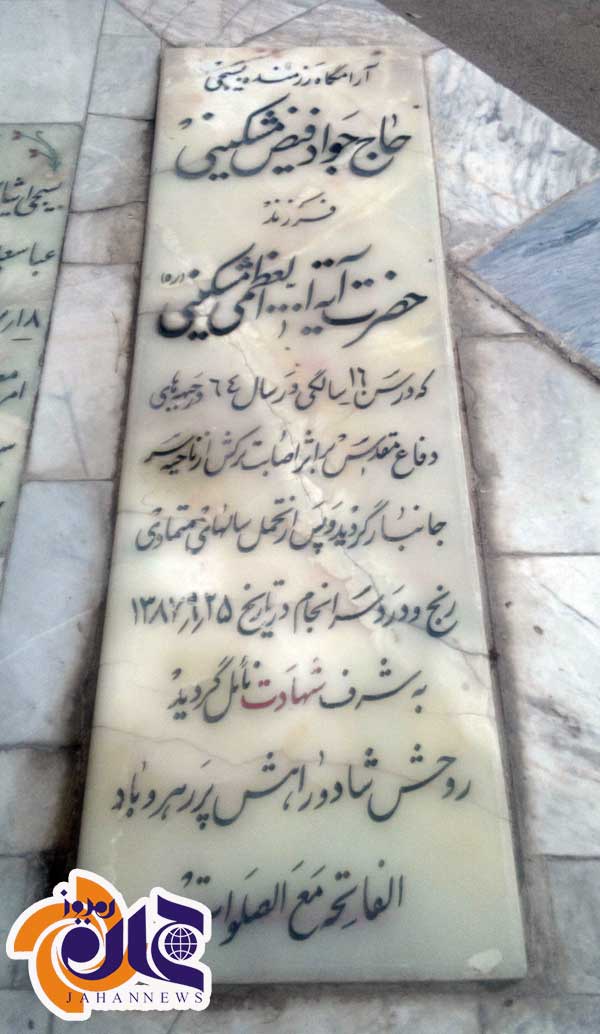 آرامگاه رزمنده بسیجی
حاج جواد فیض مشکینی
فرزند
حضرت آیة ا... العظمی مشکینی (ره)
که در سن ۱۶ سالگی در سال ۶۴ در جبهه های
دفاع مقدس بر اثر اصابت ترکش از ناحیه سر
جانباز گردید و پس از تحمل سالهای متمادی
رنج و درد سرانجام در تاریخ ۱۳۸۷/۹/۲۵
به شرف شهادت نائل گردید
روحش شاد و راهش پر رهرو باد
الفاتحه مع الصلوات
عبا
جهان
امروز
JAHANNEWS